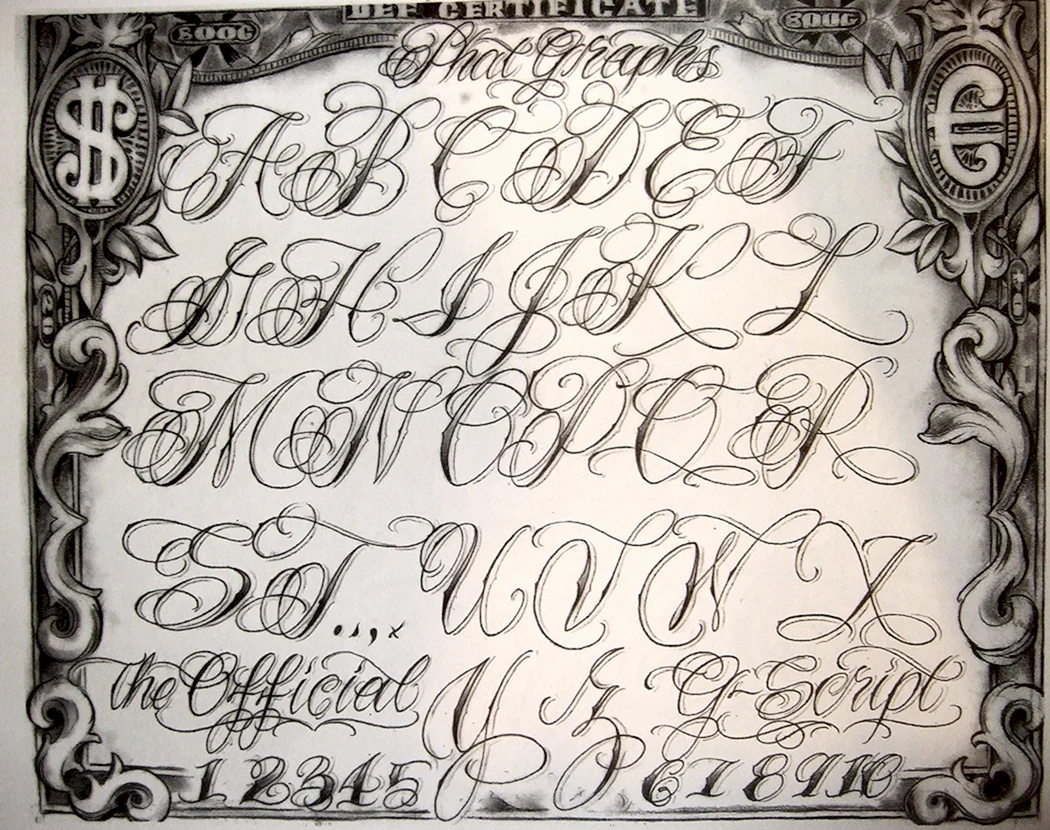 DEF CERTIFICATE
Phat Graphs
A B C D E F
G H I J K L
M N O P Q R
S T . . , , x U V W X
the Official Y Z G-Script
1 2 3 4 5 6 7 8 9 10